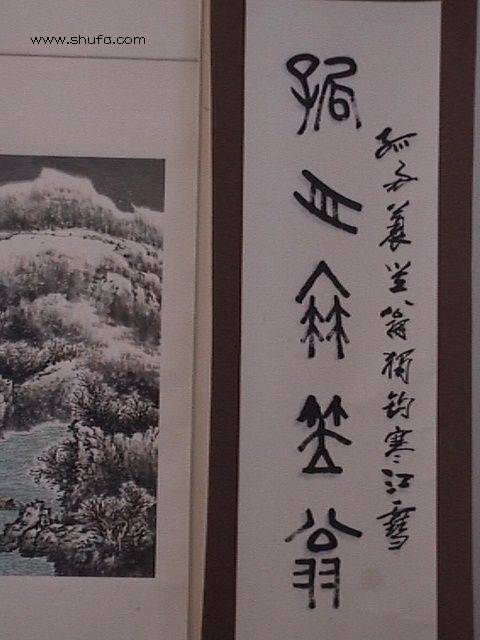 www.shufa.com
孤舟蓑笠翁獨釣寒江雪
孤舟蓑笠翁